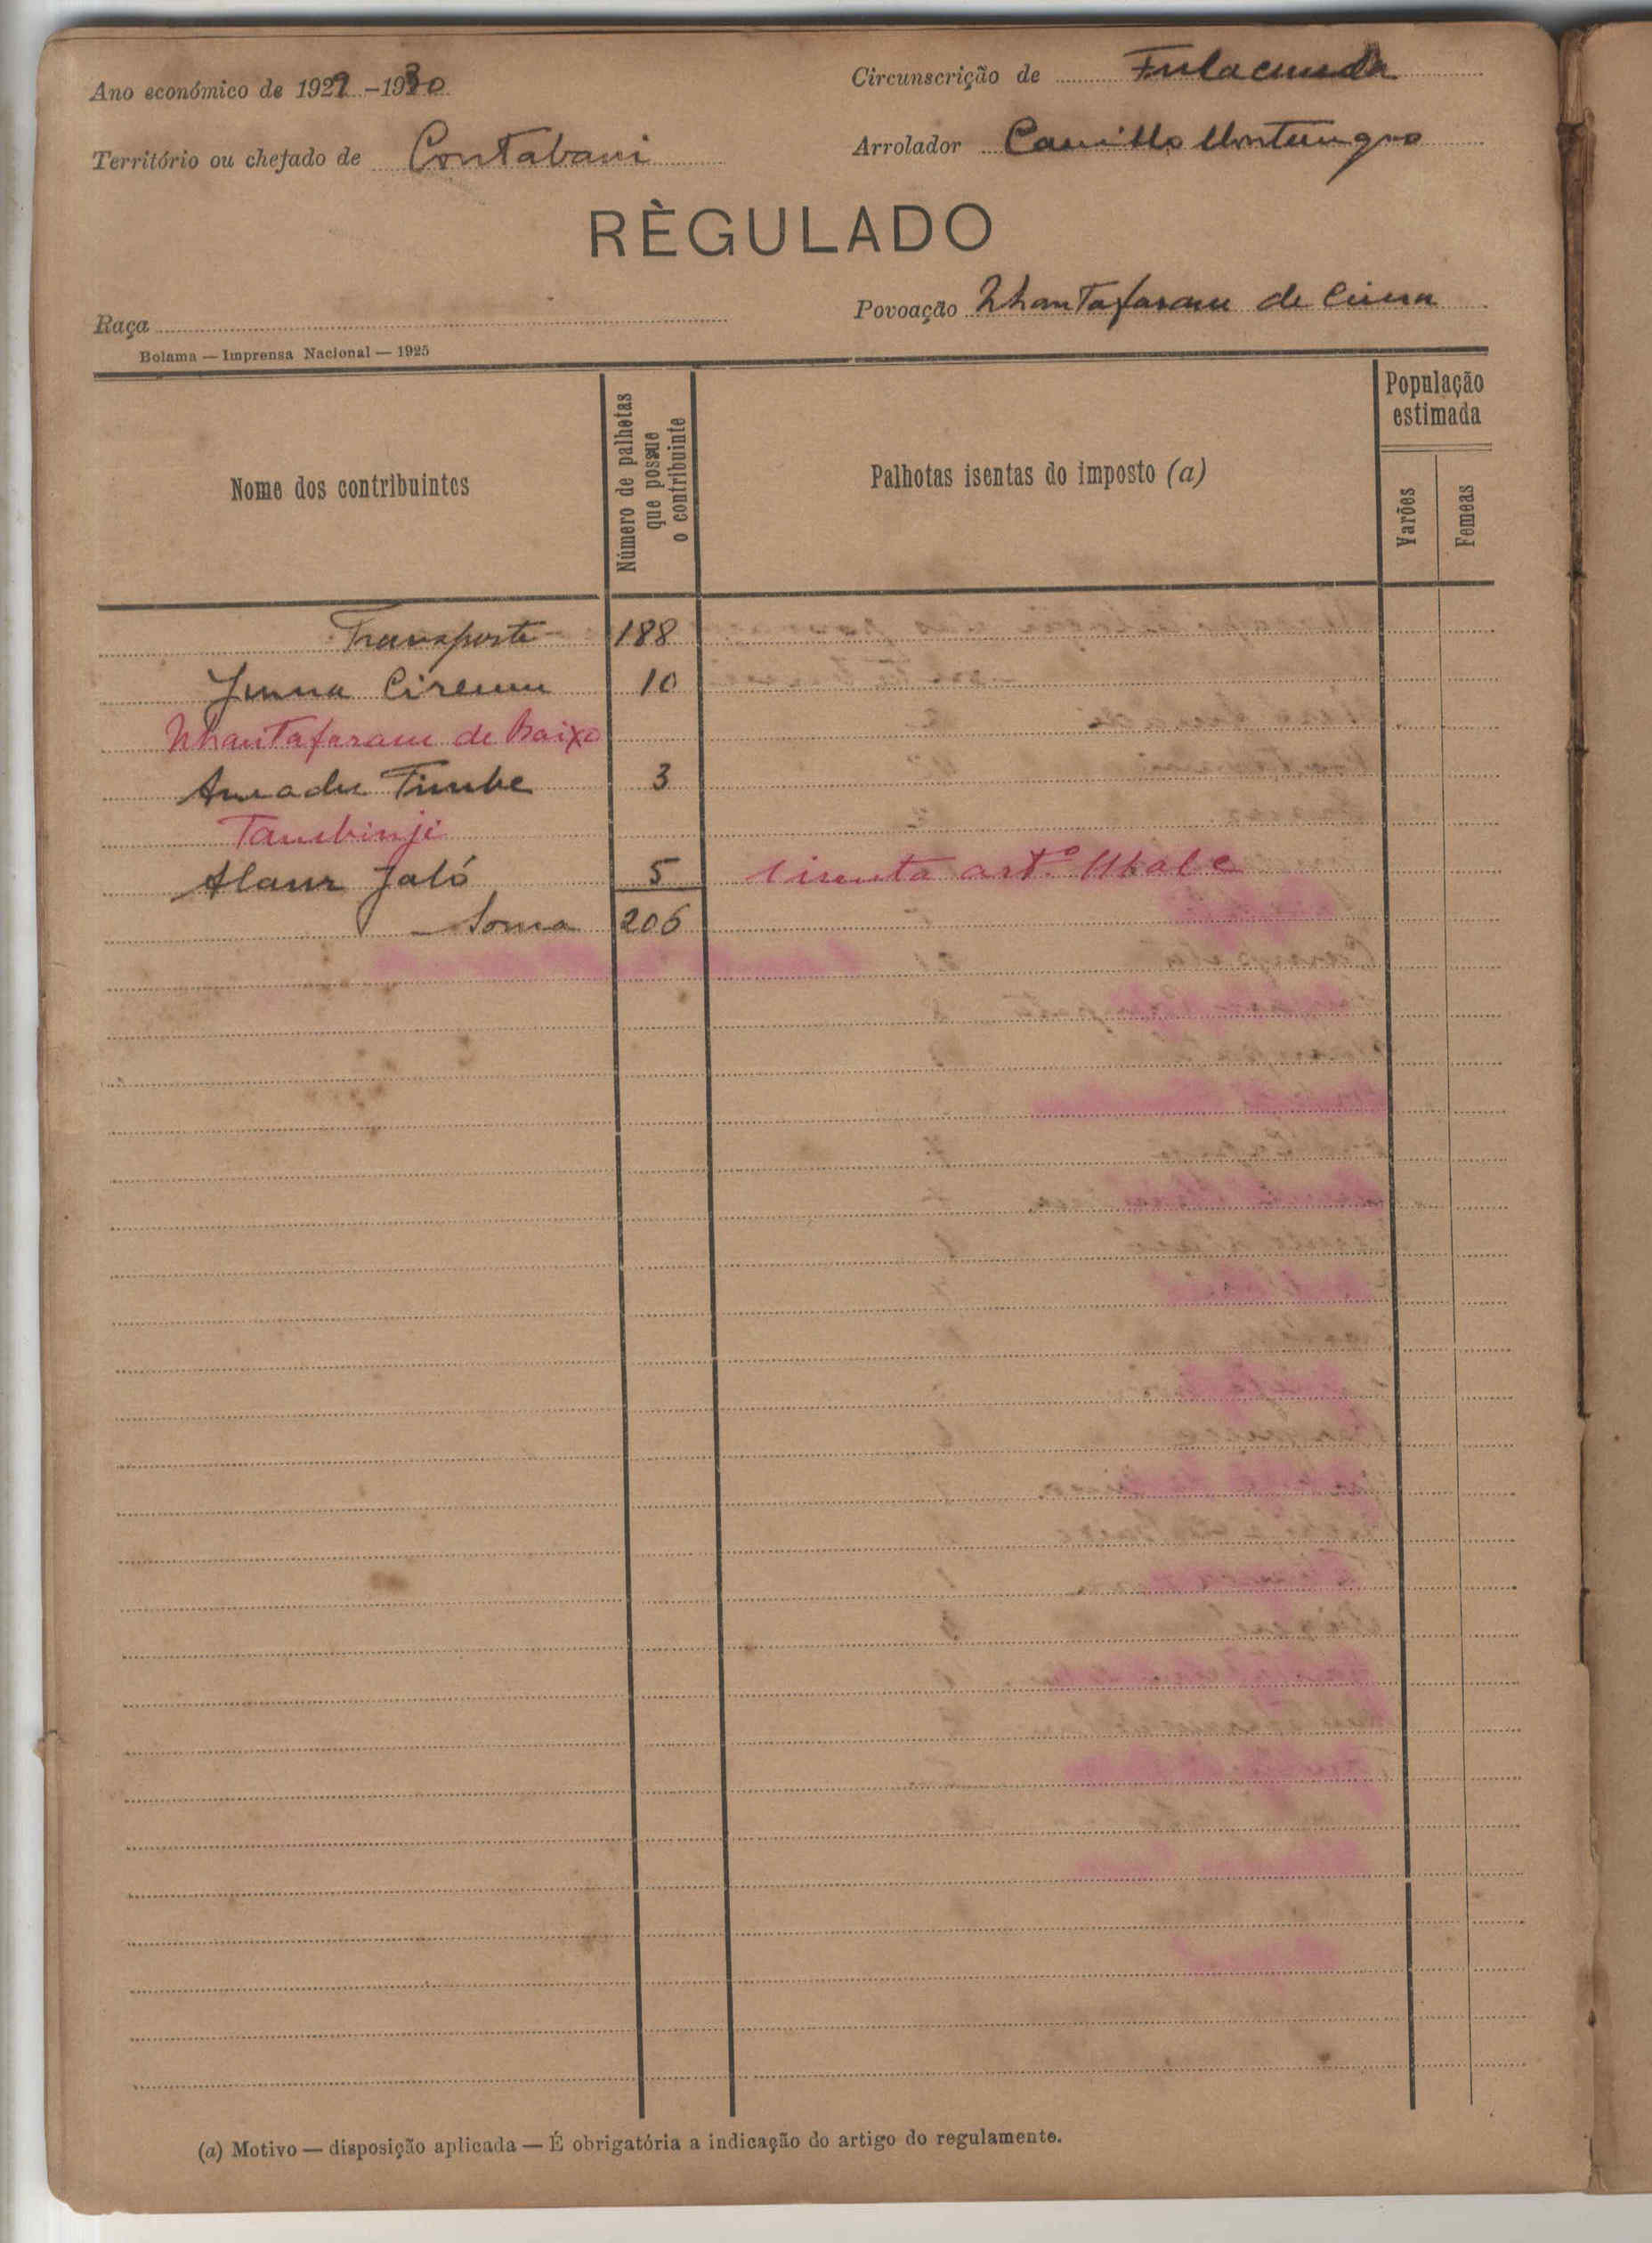 Ano económico de 1929-1930
Circunscrição de Fulacunda
Território ou chefado de Contabani
Arrolador Camillo Montenegro
RÈGULADO
Raça
Povoação Nhantafaram de Cima
Bolama — Imprensa Nacional — 1925
Nome dos contribuintes
Número de palhotas que possue o contribuinte
Palhotas isentas do imposto (a)
População estimada
Varões
Femeas
Transporte 188
10
Nhantafaram de Baixo
Amadu Timbe 3
Tambinji
Jaló 5 1 isenta art.º
Soma 206
(a) Motivo — disposição aplicada — É obrigatória a indicação do artigo do regulamento.